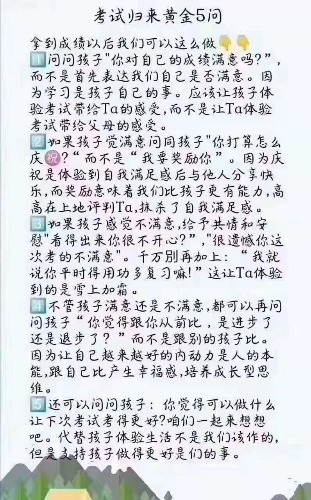 考试归来黄金5问
拿到成绩以后我们可以这么做👇👇
1️⃣问问孩子"你对自己的成绩满意吗?”,
而不是首先表达我们自己是否满意。因
为学习是孩子自己的事。应该让孩子体
验考试带给Ta的感受,而不是让Ta体验
考试带给父母的感受。
2️⃣如果孩子觉满意问问孩子"你打算怎么
庆㊗️?“而不是“我要奖励你”。因为庆
祝是体验到自我满足感后与他人分享快
乐,而奖励意味着我们比孩子更有能力,高
高在上地评判Ta,抹杀了自我满足感。
3️⃣如果孩子感觉不满意,给予共情和安
慰"看得出来你很不开心?”,"很遗憾你这
次考的不满意"。千万别再加上:“我就
说你平时得用功多复习嘛!"这让Ta体验
到的是雪上加霜。
4️⃣不管孩子满意还是不满意,都可以再问
问孩子“你觉得跟你从前比,是进步了
还是退步了?”而不是跟别的孩子比。
因为让自己越来越好的内动力是人的本
能,跟自己比产生幸福感,培养成长型思
维。
5️⃣还可以问问孩子:你觉得可以做什么
让下次考试考得更好?咱们一起来想想
吧。代替孩子体验生活不是我们该作的,
但是支持孩子做得更好是们的事。